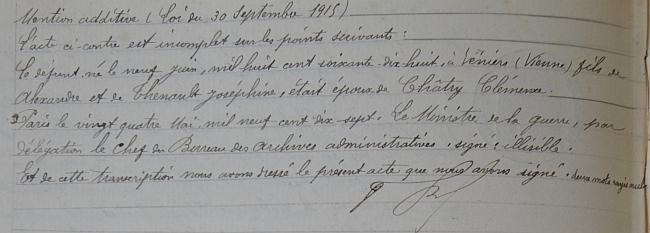 Mention additive (Loi du 30 Septembre 1915)
L'acte ci-contre est incomplet sur les points suivants :
Le défunt, né le neuf juin, mil huit cent soixante-dix huit, à Véniers (Vienne) fils de
Alexandre et de Thenault Joséphine, était époux de Châtry Clémence.
Paris le vingt quatre Mai, mil neuf cent dix-sept. Le Ministre de la guerre, par
délégation le Chef du Bureau des Archives administratives. signé : illisible.
Et de cette transcription nous avons dressé le présent acte que nous avons signé. deux mots rayés nuls